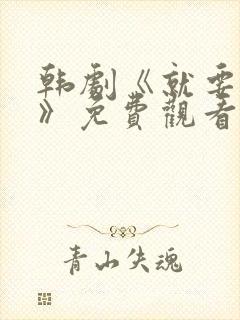 韩劇《就要
》免費觀看
青山失魂